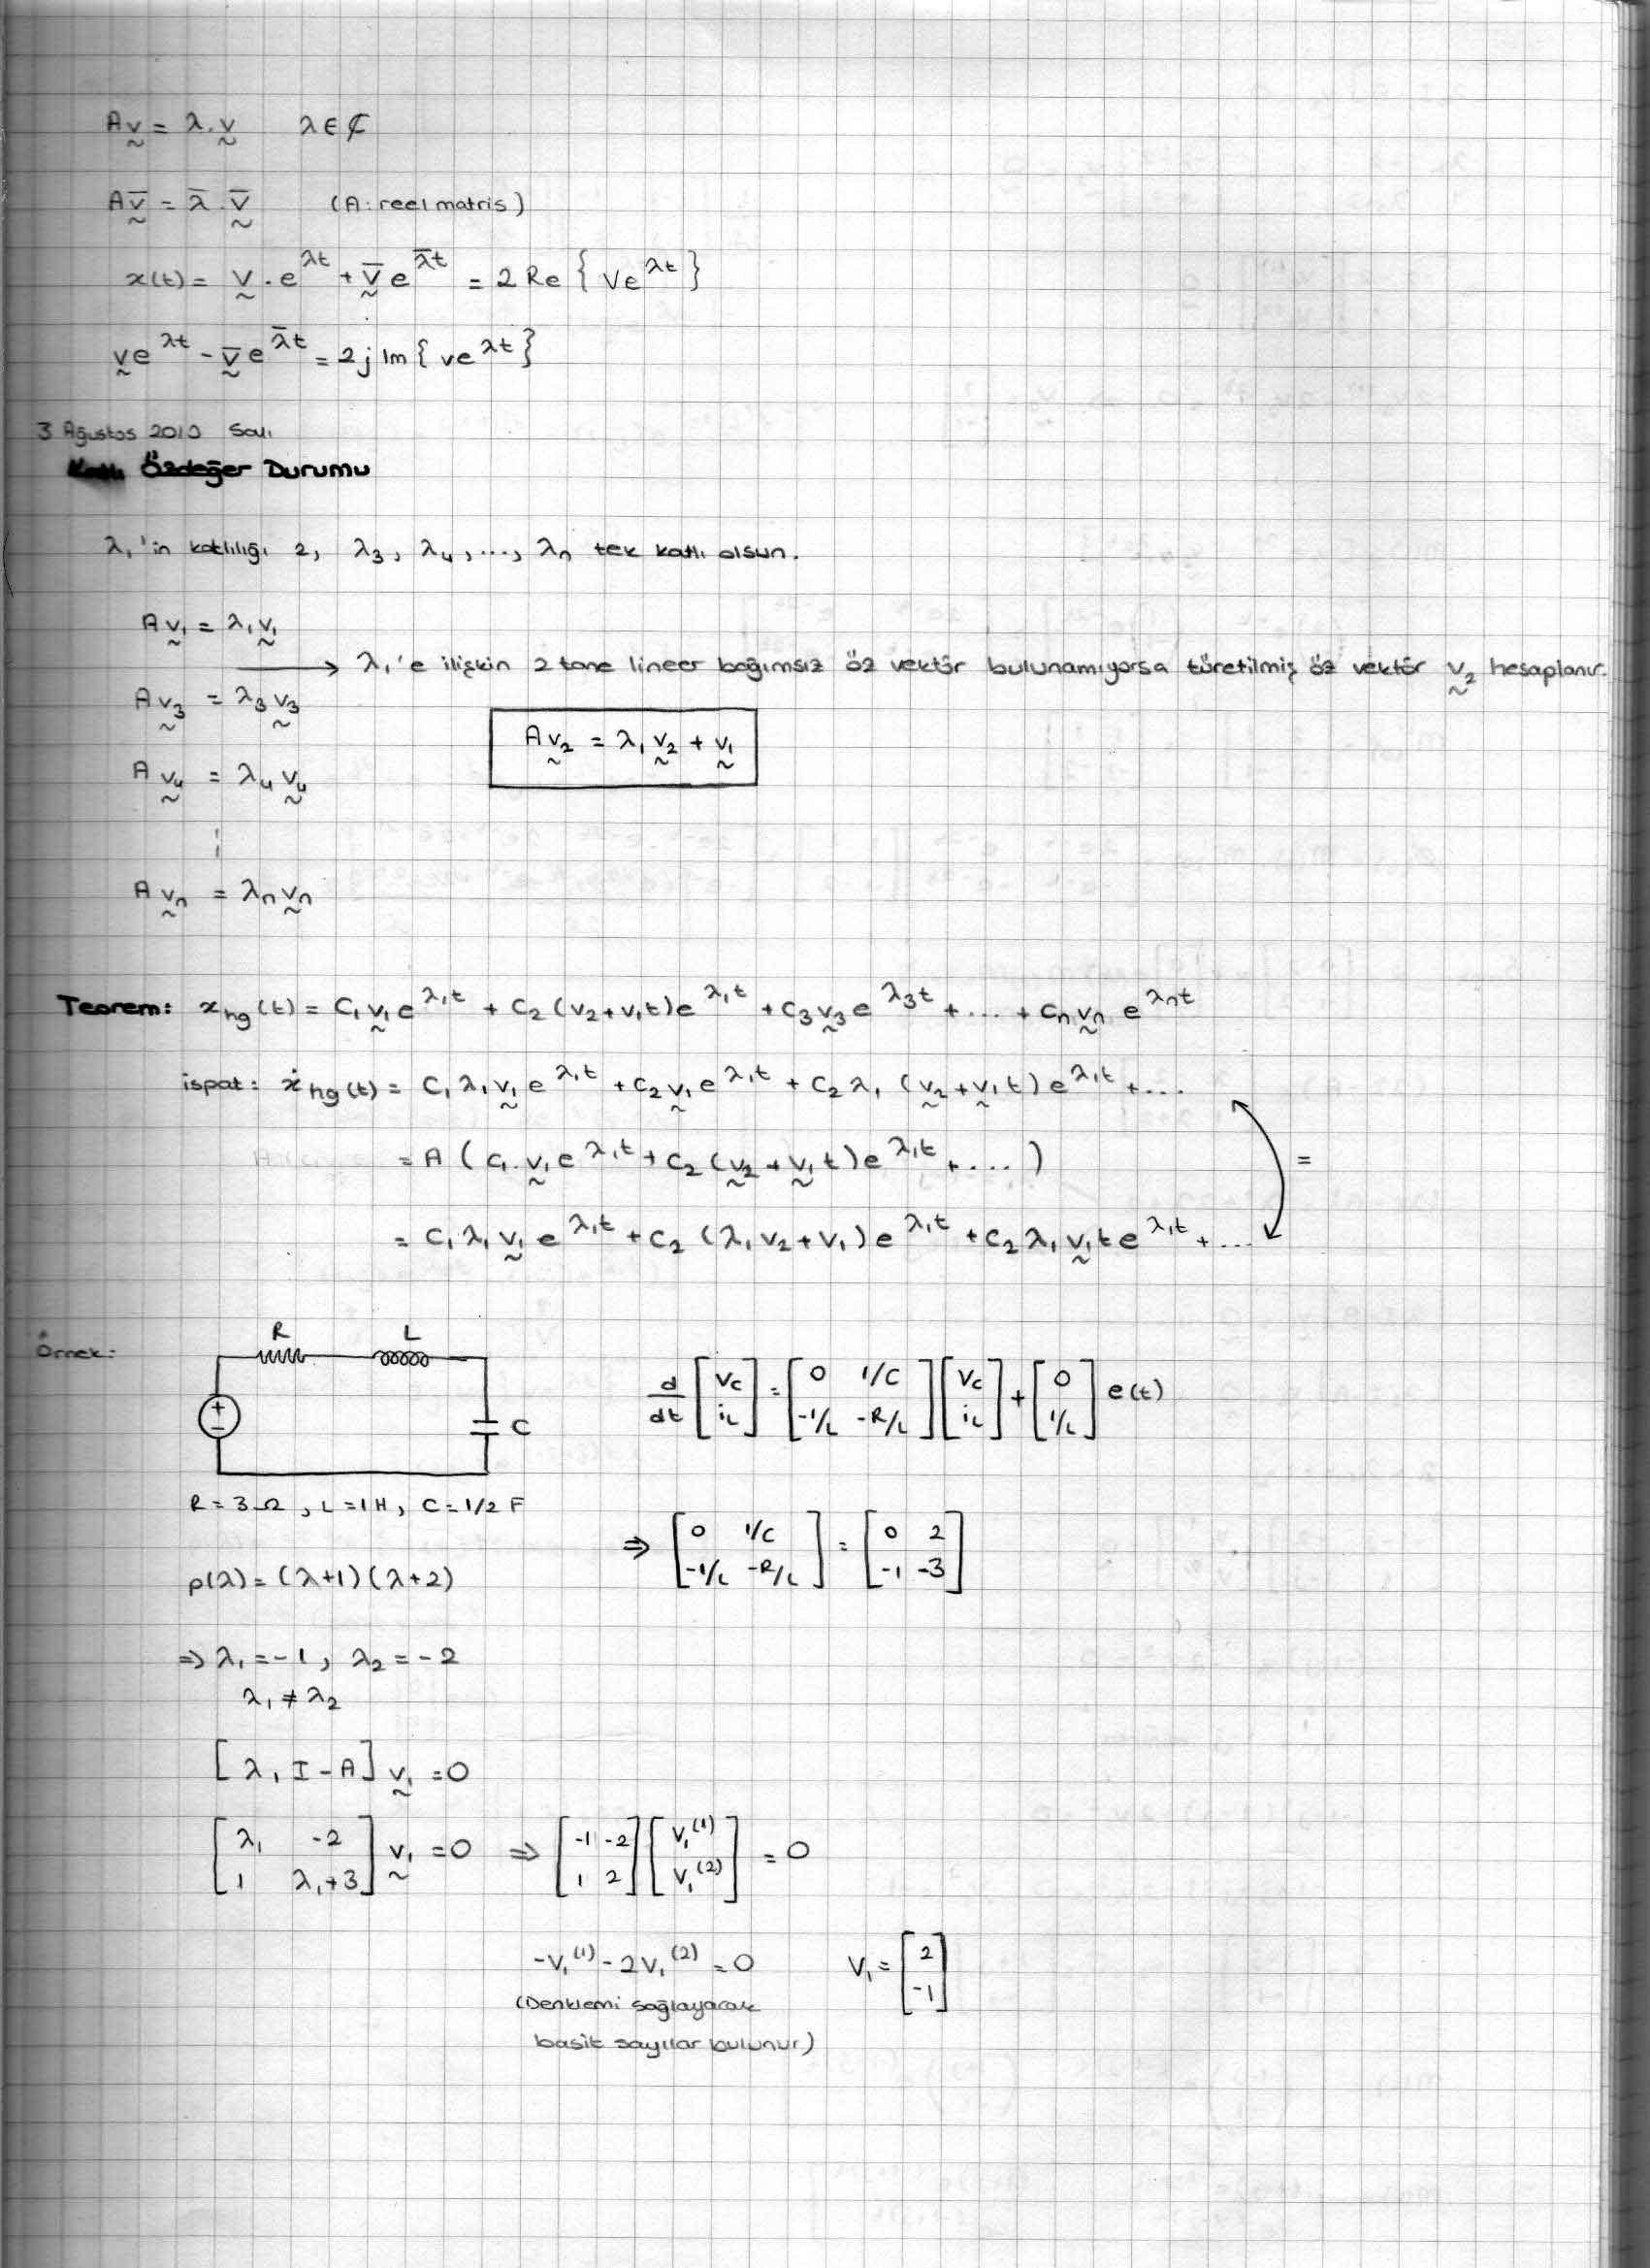 Av = λ.v λ∈ℂ
Av̄ = λ̄.v̄ (A: reel matris)
x(t) = v.e^{λt} + v̄e^{λ̄t} = 2 Re { Ve^{λt} }
ve^{λt} - v̄e^{λ̄t} = 2j Im { ve^{λt} }
3 Ağustos 2010 Salı
Katlı Özdeğer Durumu
λ₁'in katlılığı 2, λ₃, λ₄, ..., λₙ tek katlı olsun.
Av₁ = λ₁v₁
→ λ₁'e ilişkin 2 tane lineer bağımsız öz vektör bulunamıyorsa türetilmiş öz vektör v₂ hesaplanır.
Av₃ = λ₃v₃
Av₂ = λ₁v₂ + v₁
Av₄ = λ₄v₄
Avₙ = λₙvₙ
Teorem: x_{hg}(t) = C₁v₁e^{λ₁t} + C₂(v₂+v₁t)e^{λ₁t} + C₃v₃e^{λ₃t} + ... + Cₙvₙe^{λₙt}
ispat: ẋ_{hg}(t) = C₁λ₁v₁e^{λ₁t} + C₂v₁e^{λ₁t} + C₂λ₁(v₂+v₁t)e^{λ₁t} + ...
= A(C₁.v₁e^{λ₁t} + C₂(v₂+v₁t)e^{λ₁t} + ....) =
= C₁λ₁v₁e^{λ₁t} + C₂(λ₁v₂+v₁)e^{λ₁t} + C₂λ₁v₁te^{λ₁t} + ...
Örnek:
R L
+ - C
d/dt [Vc; iL] = [0 1/C; -1/L -R/L] [Vc; iL] + [0; 1/L] e(t)
R = 3Ω, L = 1H, C = 1/2 F
⇒ [0 1/C; -1/L -R/L] = [0 2; -1 -3]
p(λ) = (λ+1)(λ+2)
⇒ λ₁ = -1, λ₂ = -2
λ₁ ≠ λ₂
[λ₁I - A] v₁ = 0
[λ₁ -2; 1 λ₁+3] v₁ = 0 ⇒ [-1 -2; 1 2] [V₁⁽¹⁾; V₁⁽²⁾] = 0
-V₁⁽¹⁾ - 2V₁⁽²⁾ = 0 V₁ = [2; -1]
(Denklemi sağlayacak
basit sayılar bulunur)